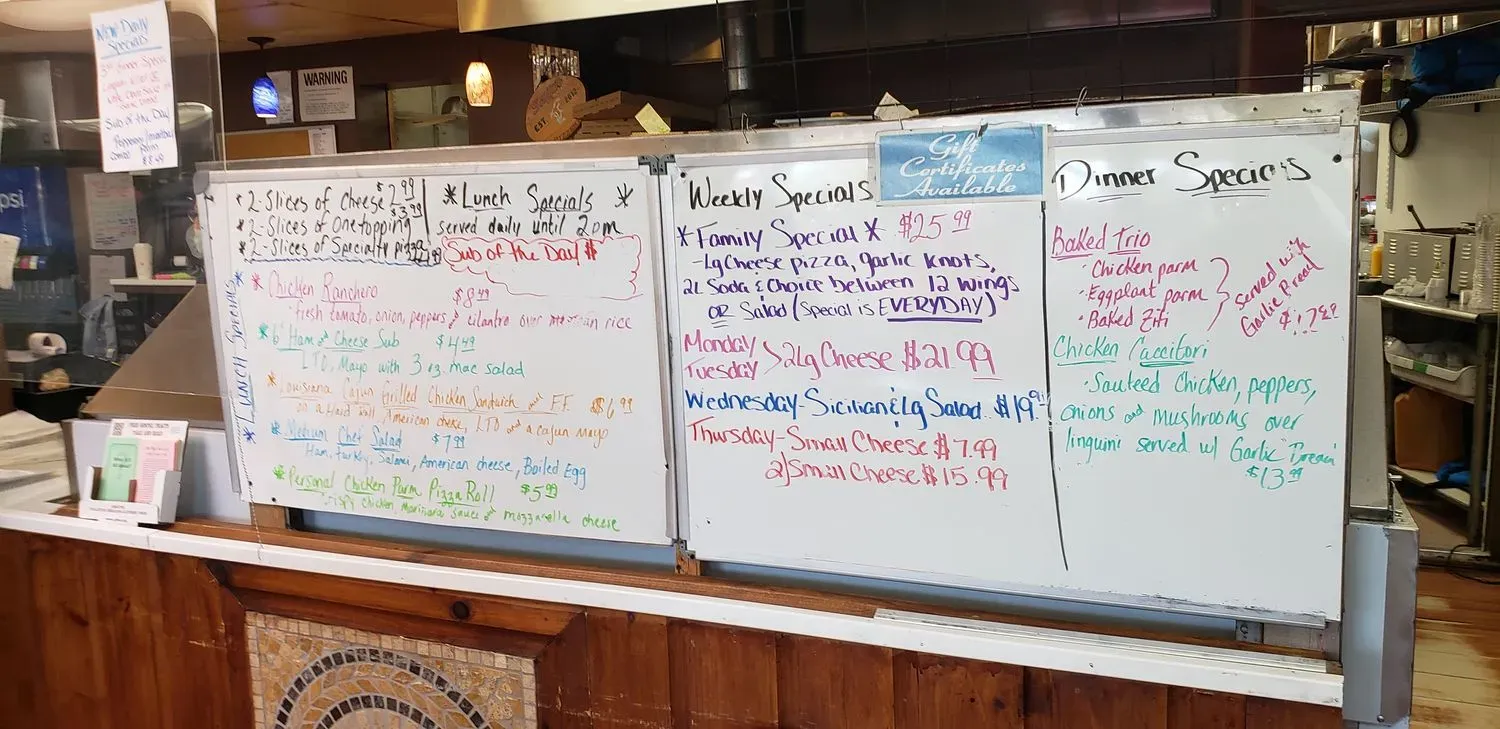 New Daily
Specials
Sub of the Day
$8.49
psi
WARNING
EST 2010
Gift
Certificates
Available
* 2-Slices of cheese $2.99
* 2-Slices of One topping $3.79
* 2-Slices of Specialty pizza
* Lunch Specials *
served daily until 2pm
Sub of the Day $
* LUNCH Specials *
* Chicken Ranchero $8.49
fresh tomato, onion, peppers & cilantro over rice
* 6" Ham & Cheese Sub $4.49
LTO, Mayo with 3 oz. mac salad
* Louisiana Cajun Grilled Chicken Sandwich and F.F. $6.99
on a Hard Roll, American cheese, LTO and a cajun mayo
* Medium Chef Salad $7.99
Ham, turkey, Salami, American cheese, Boiled Egg
* Personal Chicken Parm Pizza Roll $5.99
crispy chicken, Marinara sauce & mozzarella cheese
Weekly Specials
* Family Special * $25.99
- Lg Cheese pizza, garlic knots,
2L Soda & Choice between 12 wings
OR Salad (Special is EVERYDAY)
Monday
Tuesday > 2Lg Cheese $21.99
Wednesday - Sicilian & Lg Salad $19.
Thursday - Small Cheese $7.99
2) Small Cheese $15.99
Dinner Specials
Baked Trio
· Chicken parm
· Eggplant parm
· Baked Ziti
served with
Garlic Bread
Chicken Caccitori
· Sauteed Chicken, peppers,
onions and mushrooms over
linguini served w/ Garlic Bread
$13.99